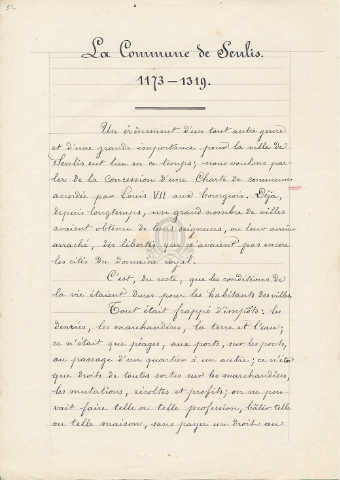 La Commune de Senlis.
1173 — 1319.
Un évènement d'un tout autre genre
et d'une grande importance pour la ville de
Senlis eut lieu en ce temps; nous voulons par-
ler de la concession d'une Charte de commune
accordée par Louis VII aux bourgeois. Déjà,
depuis longtemps, un grand nombre de villes
avaient obtenu de leurs seigneurs, ou leur avaient
arraché, des libertés que n'avaient pas encore
les cités du domaine royal.
C'est, du reste, que les conditions de
la vie étaient dures pour les habitants des villes.
Tout était frappé d'impôts: les
denrées, les marchandises, la terre et l'eau;
ce n'était que péages, aux ports, sur les ponts,
au passage d'un quartier à un autre; ce n'était
que droits de toutes sortes sur les marchandises,
les mutations, récoltes et profits; on ne pou-
vait faire telle ou telle profession, bâtir telle
ou telle maison, sans payer un droit au